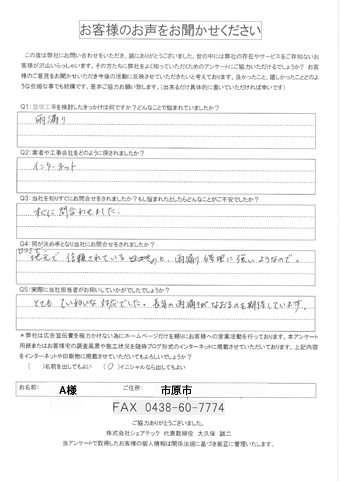 お客様のお声をお聞かせください
この度は弊社にお問い合わせをいただき、誠にありがとうございました。世の中には弊社の存在やサービスをご存知ないお
客様が沢山いらっしゃいます。その方たちに弊社をよく知っていただくためのアンケートにご協力いただけるでしょうか? お客
様のご意見をお聞かせいただき今後の活動に反映させていただきたいと考えております。良かったこと、嬉しかったことどのよ
うな些細な事でも結構です。是非ご協力お願い致します。(出来るだけ具体的に書いていただければ幸いです)
Q1:屋根工事を検討したきっかけは何ですか?どんなことで悩まれていましたか?
雨漏り
Q2:業者や工事会社をどのように探されましたか?
インターネット
Q3:当社を知りすぐにお問合せをされましたか?もし悩まれたとしたらどんなことがご不安でしたか?
すぐに問合わせました.
Q4:何が決め手となり当社にお問合せをされましたか?
口コミで
地元で信頼されている と、雨漏り修理に強いようなので。
Q5:実際に当社担当者がお伺いしていかがでしたでしょうか?
とても ていねいな 対応でした。長年の雨漏りがなおるのを期待しています。
*弊社は広告宣伝費を極力かけない為にホームページだけを頼りにお客様への営業活動を行っております。本アンケート
用紙またはお客様宅の調査風景や施工状況を随時ブログ形式のインターネットに掲載させていただいております。上記内容
をインターネットや印刷物に掲載させていただいてもよろしいでしょうか?
( )名前を出してもよい (○)イニシャルなら出してもよい
お名前: A様 ご住所: 市原市
FAX 0438-60-7774
ご協力ありがとうございました。
株式会社シェアテック 代表取締役 大久保 誠二
当アンケートで取得したお客様の個人情報は関係法規に基づき厳正に管理いたします。